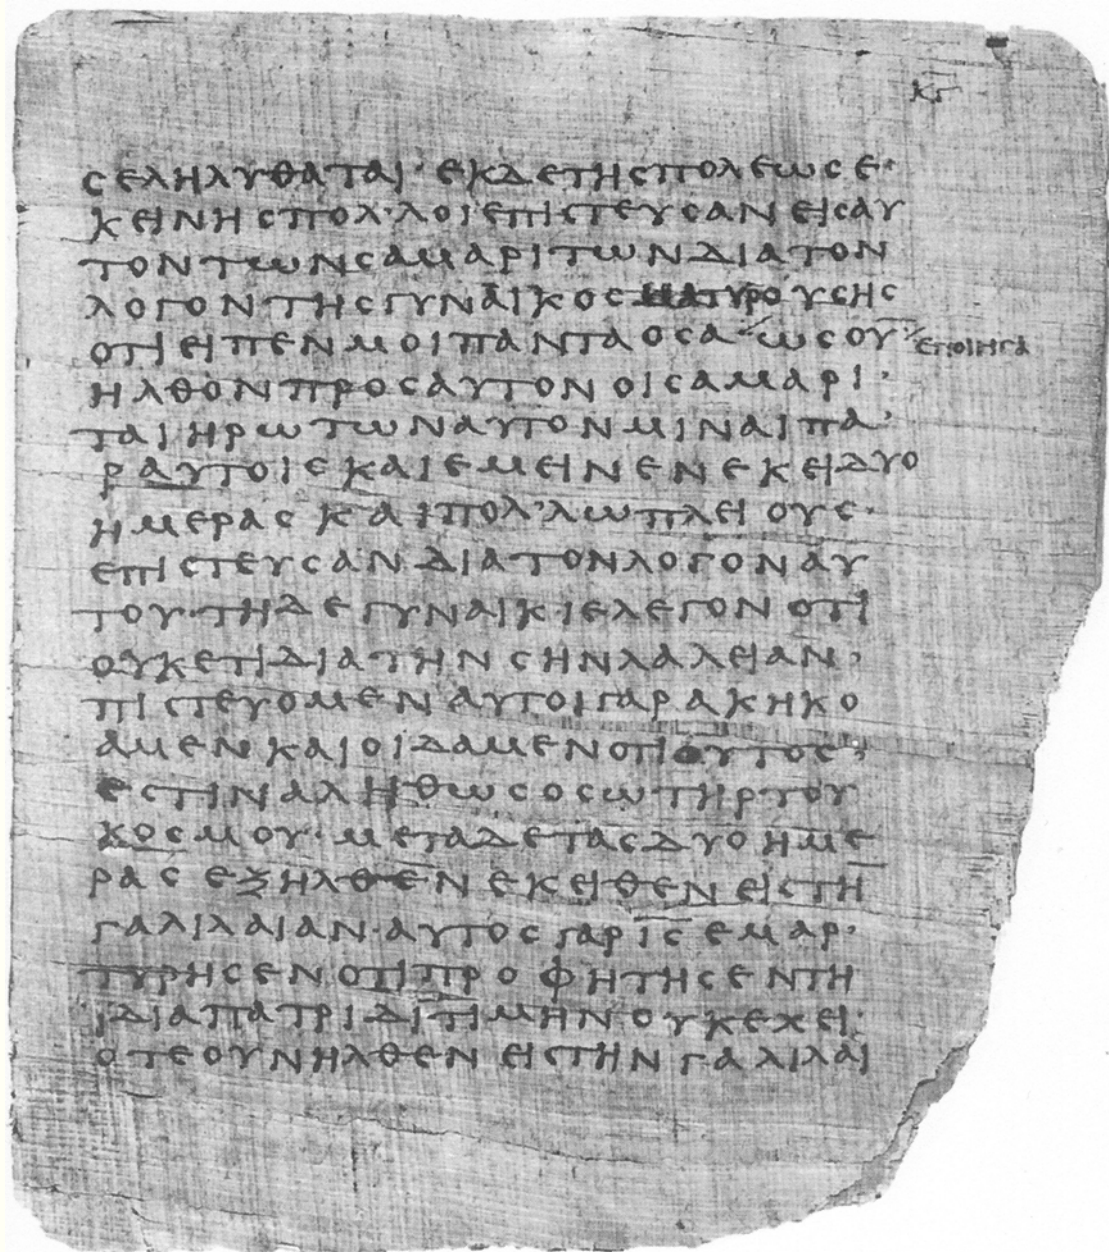 κγ
ςεληλυθαται· εκδετηςπολεωςε·
κεινηςπολ᾽λοιεπιςτευςανειςαυ
τοντωνςαμαριτωνδιατον
λογοντηςγυναικοςματυρουςης
οτιειπενμοιπανταοςα ωςου εποιηςα
ηλθονπροςαυτονοιςαμαρι·
ταιηρωτωναυτονμιναιπα·
ραυτοιςκαιεμεινενεκειδυο
ημεραςκαιπολ᾽λωπλειους·
επιςτευςανδιατονλογοναυ
του·τηδεγυναικιελεγονοτι
ουκετιδιατηνςηνλαλειαν᾽
πιςτευομεναυτοιγαρακηκο
αμενκαιοιδαμενοτιουτος᾽
εςτιναληθωςοςωτηρτου
κοςμου·μεταδεταςδυοημε
ραςεξηλθενεκειθενειςτη̅
γαλιλαιαν·αυτοςγαρι̅ς̅εμαρ·
τυρηςενοτιπροφητηςεντη
ιδιαπατριδιτιμηνουκεχει·
οτεουνηλθενειςτηνγαλιλαι